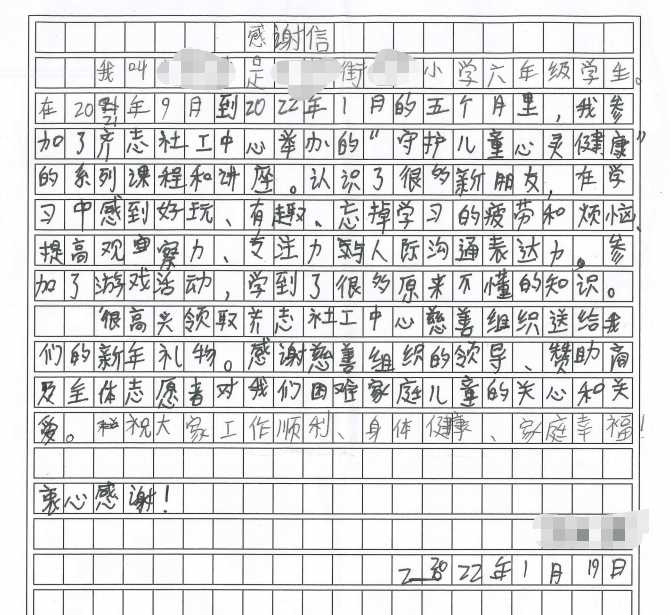 感谢信
我叫 是 街 小学六年级学生。
在2021年9月到2022年1月的五个月里，我参
加了齐志社工中心举办的“守护儿童心灵健康”
的系列课程和讲座。认识了很多新朋友，在学
习中感到好玩、有趣、忘掉学习的疲劳和烦恼、
提高观察力、专注力 人际沟通表达力。参
加了游戏活动，学到了很多原来不懂的知识。
很高兴领取齐志社工中心慈善组织送给我
们的新年礼物。感谢慈善组织的领导、赞助商
及全体志愿者对我们困难家庭儿童的关心和关
爱。祝大家工作顺利、身体健康、家庭幸福！
衷心感谢！
2022年1月19日